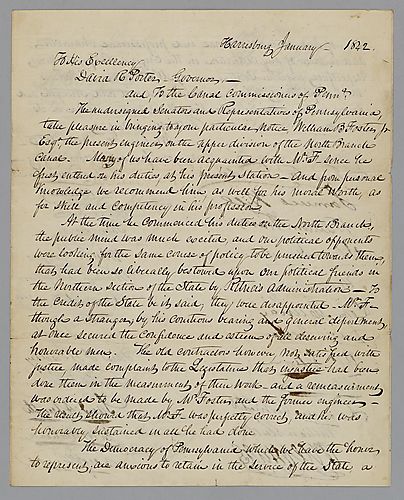 Harrisburg January 1842.
To His Excellency
David R Porter Governor,—
and, To the Canal Commissioners of Penna.
The undersigned Senators and Representatives of Pennsylvania,
take pleasure in bringing to your particular Notice William B. Foster, jr
Esqr, the present engineer on the upper division of the North Branch
Canal. Many of us have been acquainted with Mr F. since he
first entered on his duties at his present Station — And from personal
knowledge we recommend him as well for his moral Worth, as
for Skill and Competency in his profession.
At the time he Commenced his duties on the North Branch,
the public mind was much excited, and our political opponents
were looking for the same course of policy to be pursued towards them,
that had been so liberally bestowed upon our political friends in
the Northern Section of the State by Ritner's Administration — To
the Credit of the State be it said, they were disappointed. Mr F—
though a stranger, by his Courteous bearing and general deportment,
at once secured the Confidence and esteem of all deserving and
honorable men. The old Contractors however, Not satisfied with
justice made complaint to the Legislature that injustice had been
done them in the measurement of their Work — and a remeasurement
was ordered to be made by Mr Foster and the former engineer —
The result showed that Mr F. was perfectly correct, and he was
honorably sustained in all he had done.
The Democracy of Pennsylvania whom we have the honor
to represent, are anxious to retain in the service of the State a